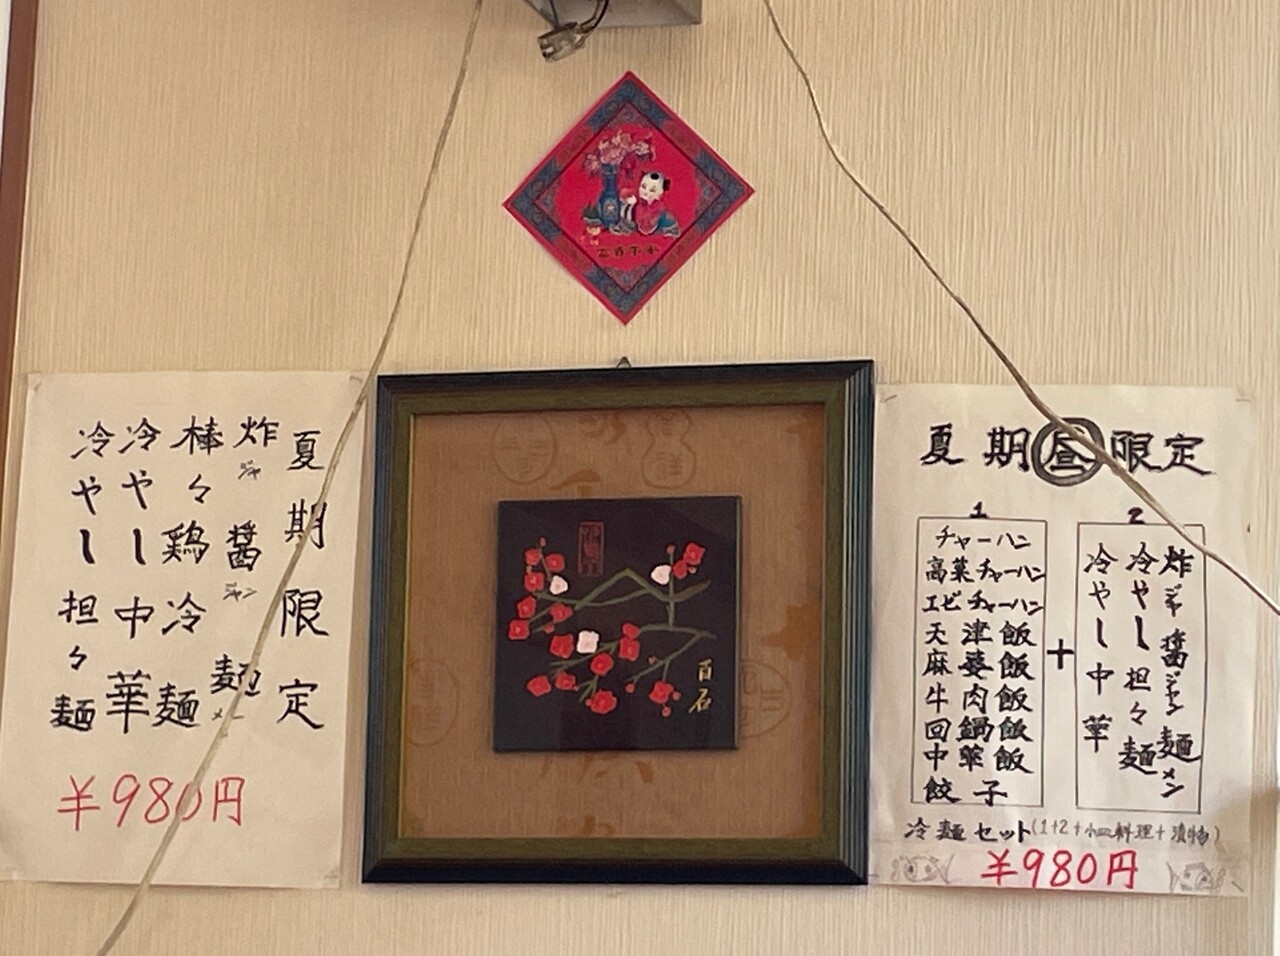 夏期限定
炸ジャ醤ジャン麺メン
棒々鶏冷麺
冷やし中華
冷やし担々麺
¥980円
百石
夏期昼限定
1
チャーハン
高菜チャーハン
エビチャーハン
天津飯
麻婆飯
牛肉飯
回鍋飯
中華飯
餃子
+
2
炸ジャ醤ジャン麺メン
冷やし担々麺
冷やし中華
冷麺セット(1+2+小皿料理+漬物)
¥980円